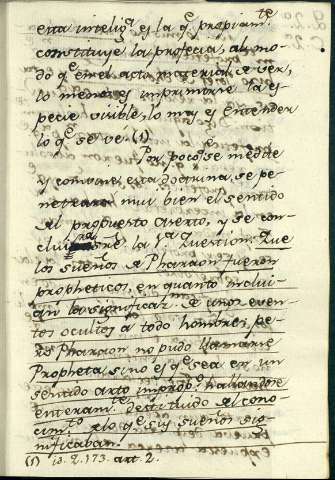 esta inteligª es la qᵉ propiamᵗᵉ
constituye la profecia, al mo-
do qᵉ en el acto material de ver,
lo menos es imprimirse la es-
pecie visible, lo mas es entender
lo qᵉ se ve. (1)
Por poco se medite
y convine esta doctrina, se pe-
netrara mui bien el sentido
al propuesto aserto, y se con-
cluirá sre. la 1ª Question: Que
los sueños de Pharaon fueron
propheticos, en quanto inclui-
an la significazⁿ de unos even-
tos ocultos a todo hombre; pe-
ro Pharaon no pudo llamarse
Propheta, sino es qᵉ sea en un
sentido arto impropº, hallandose
enteramᵗᵉ destituido al cono-
cimᵗº de lo qᵉ sus sueños sig-
nificaban.
(1) id. q. 173. art. 2.